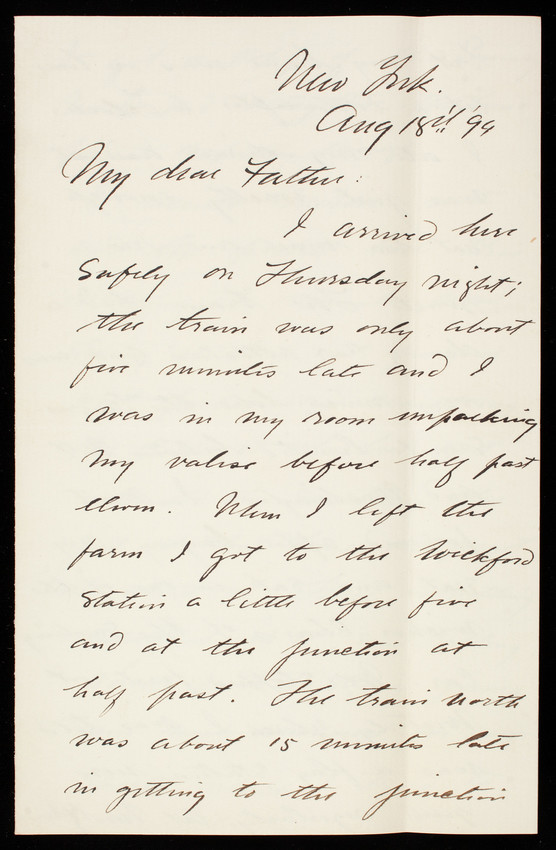 New York.
Aug 18th '94
My dear Father:
I arrived here
safely on Thursday night;
the train was only about
five minutes late and I
was in my room unpacking
my valise before half past
eleven. When I left the
farm I got to the Wickford
Station a little before five
and at the junction at
half past. The train north
was about 15 minutes late
in getting to the junction